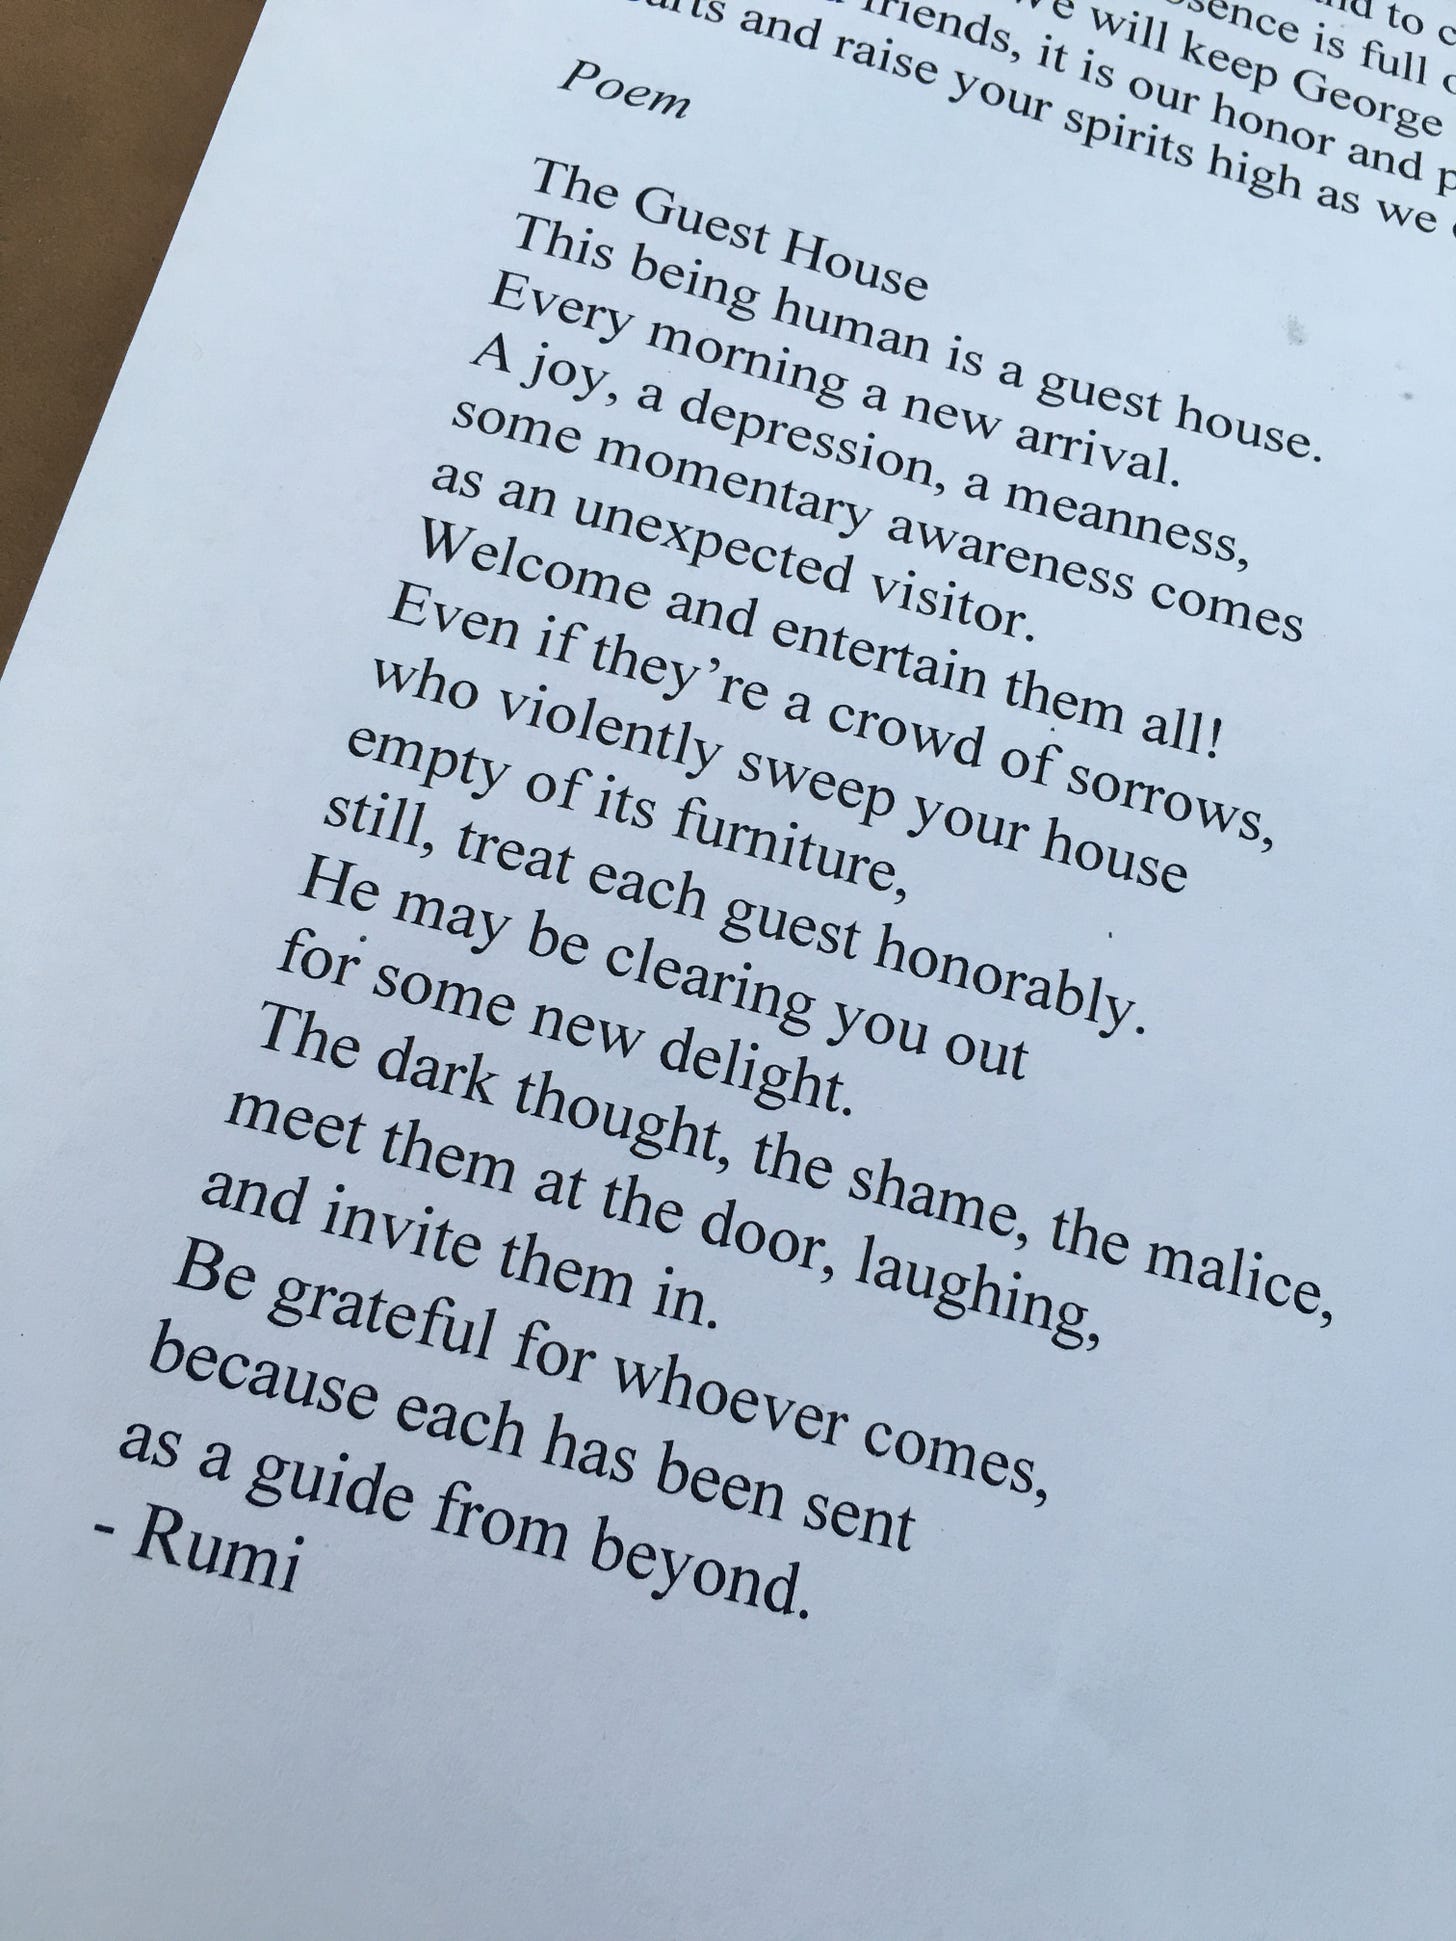 to
sence is full
we will keep George
friends, it is our honor and
and raise your spirits high as we
Poem
The Guest House
This being human is a guest house.
Every morning a new arrival.
A joy, a depression, a meanness,
some momentary awareness comes
as an unexpected visitor.
Welcome and entertain them all!
Even if they’re a crowd of sorrows,
who violently sweep your house
empty of its furniture,
still, treat each guest honorably.
He may be clearing you out
for some new delight.
The dark thought, the shame, the malice,
meet them at the door, laughing,
and invite them in.
Be grateful for whoever comes,
because each has been sent
as a guide from beyond.
- Rumi